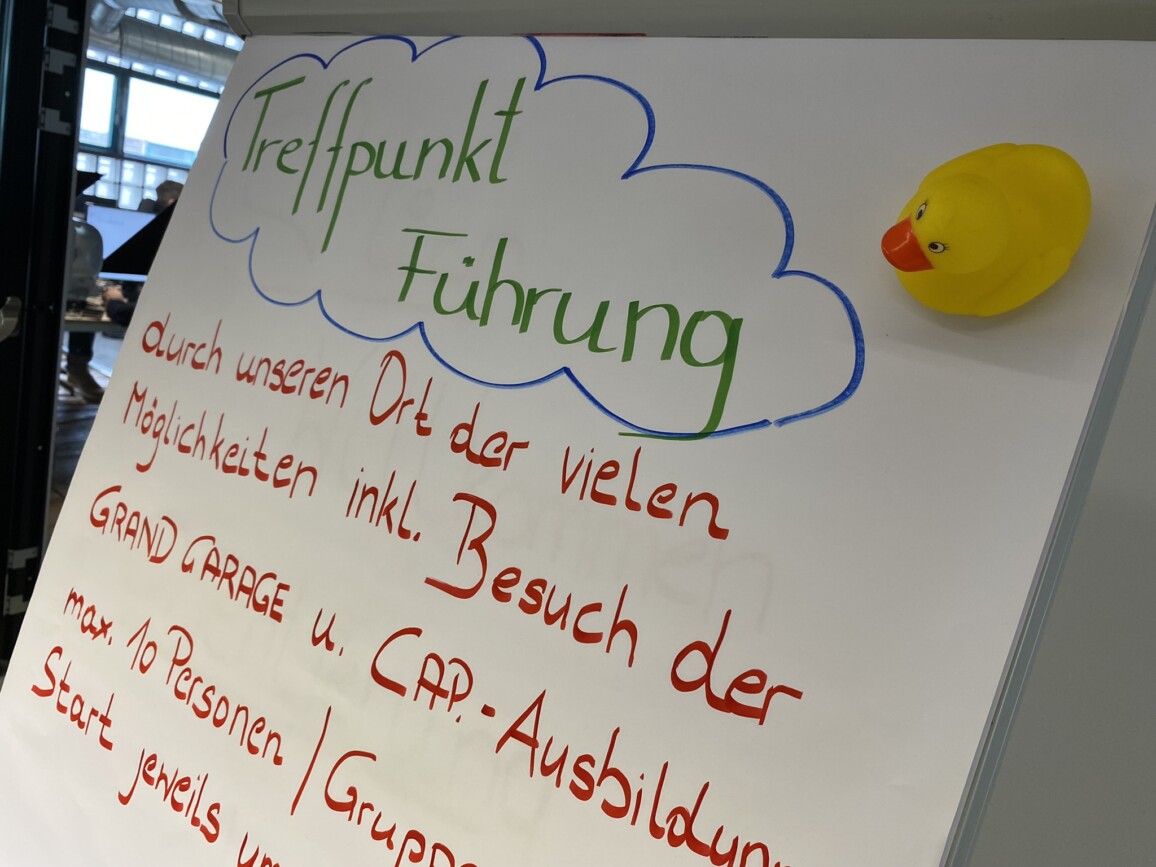 Treffpunkt
Führung
durch unseren Ort der vielen
Möglichkeiten inkl. Besuch der
GRAND GARAGE u. CAP.-Ausbildung
max. 10 Personen / Gruppe
Start jeweils um